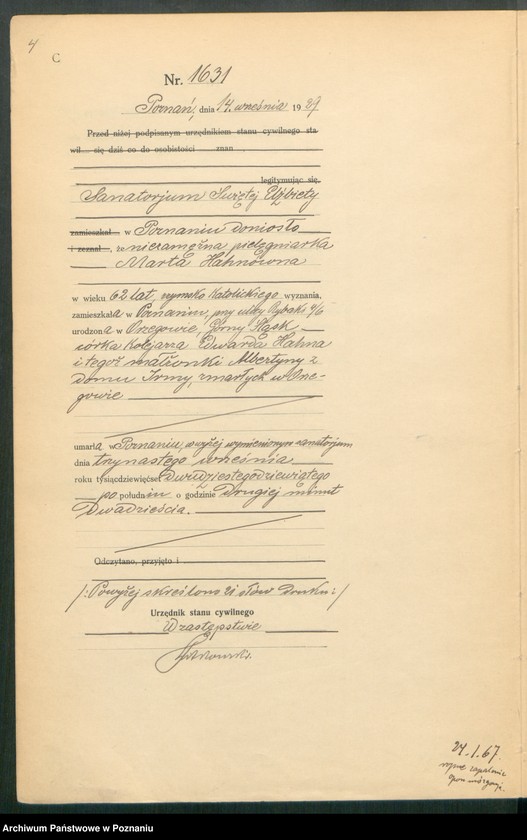 4
C
Nr. 1631
Poznań, dnia 14. września 1929
Przed niżej podpisanym urzędnikiem stanu cywilnego sta-
wił się dziś co do osobistości znan
legitymując się
Sanatorjum Świętej Elżbiety
zamieszkał w Poznaniu doniosło
i zeznał, że niezamężna, pielęgniarka
Marta Hahnówna
w wieku 62 lat, rzymsko katolickiego wyznania,
zamieszkała w Poznaniu, przy ulicy Rybaki
urodzona w Górny Śląsk
córka kolejarza Edwarda Hahna
i tegoż małżonki Albertyny z
domu zmarłych w
gowie
umarła w Poznaniu, w wyżej wymienionym sanatorjum
dnia trzynastego września
roku tysiąc dziewięćset dwudziestego dziewiątego
po południu o godzinie drugiej minut
dwadzieścia.
Odczytano, przyjęto i
/: Powyżej skreślono 21 słów druku :/
Urzędnik stanu cywilnego
W zastępstwie
24.1.67.
Archiwum Państwowe w Poznaniu